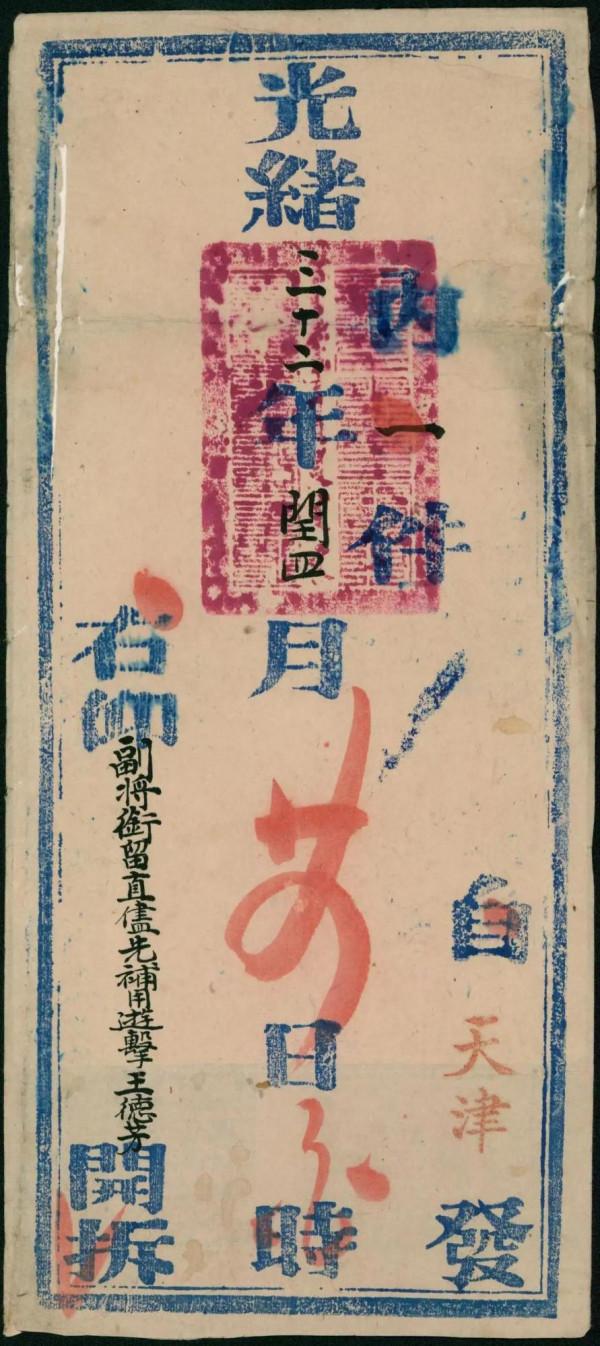 內一件
自天津發
光緒三十二年閏四月日時
右仰副將銜留直儘先補用遊擊王德芳開拆